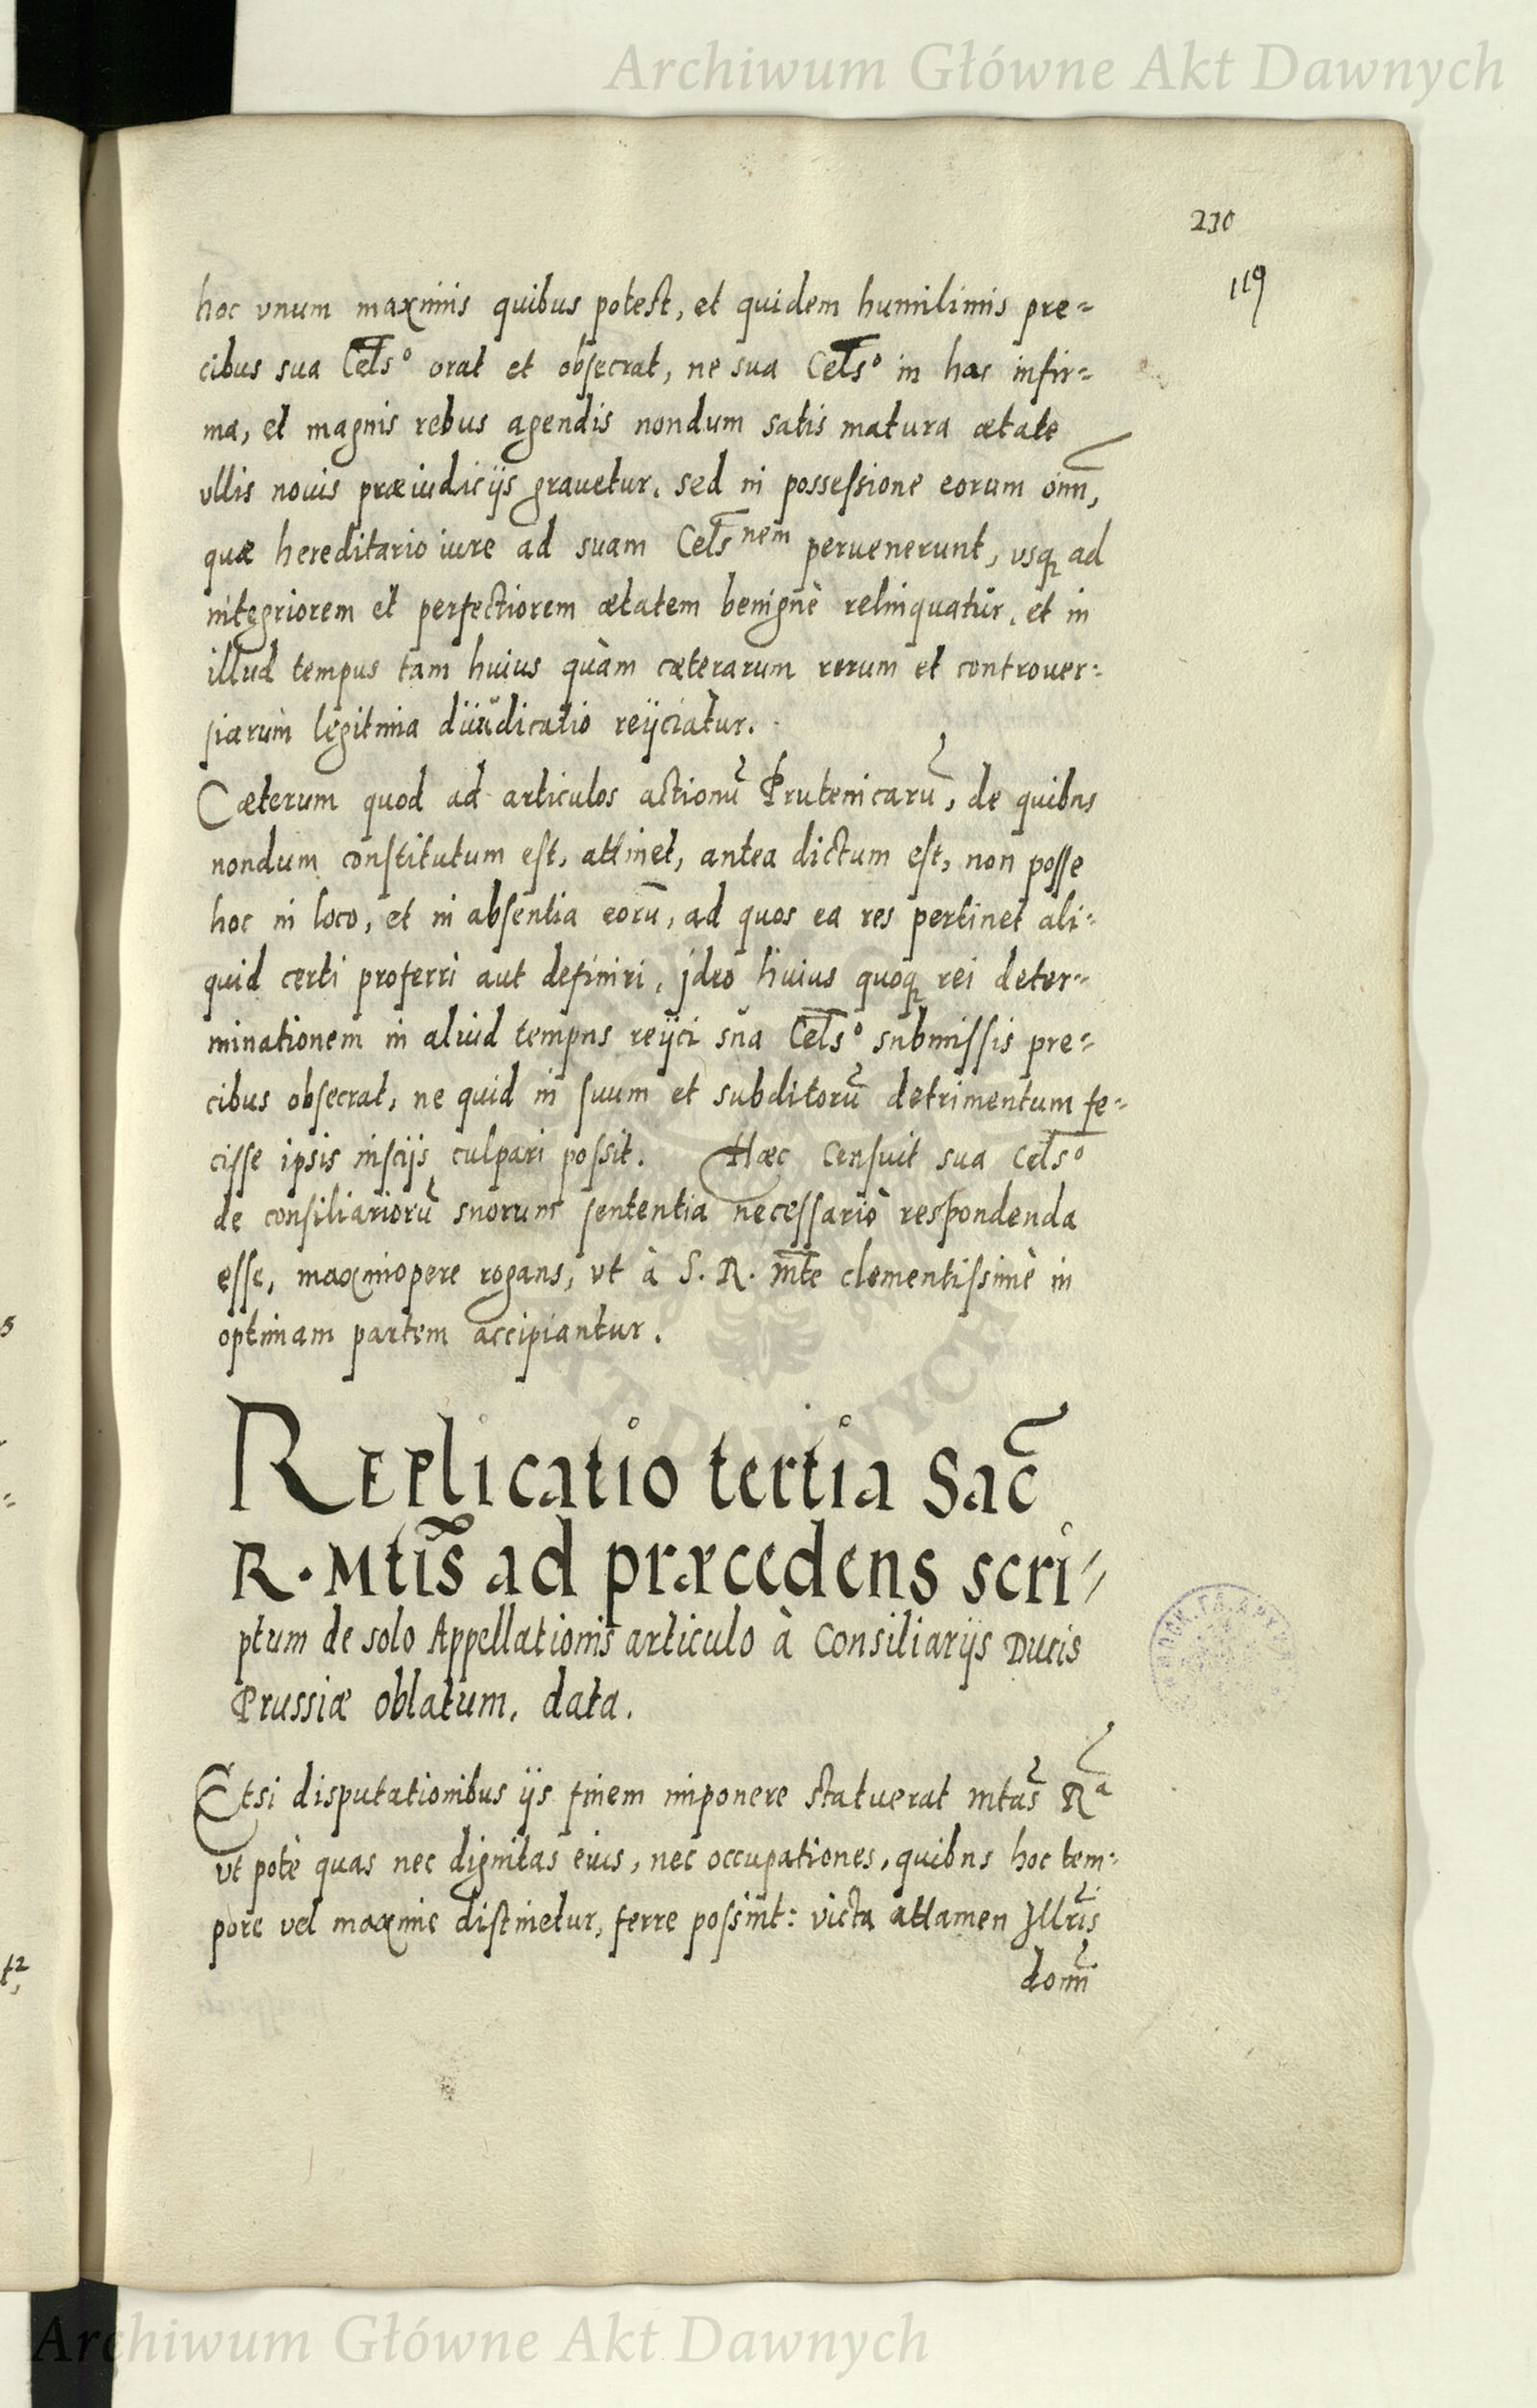 Archiwum Główne Akt Dawnych
230
119
hoc vnum maximis quibus potest, et quidem humilimis pre=
cibus sua Cels° orat et obsecrat, ne sua Cels° in hac infir=
ma, et magnis rebus agendis nondum satis matura ætate
vllis nouis præiudicijs grauetur. sed in possessione eorum om̃,
quæ hereditario iure ad suam Cels^nem peruenerunt, vsq3 ad
integriorem et perfectiorem ætatem benignè relinquatur, et in
illud tempus tam huius quàm cæterarum rerum et controuer=
siarum legitima diiudicatio reijciatur.
Cæterum quod ad articulos actionũ Prutenicarũ, de quibus
nondum constitutum est, attinet, antea dictum est, non posse
hoc in loco, et in absentia eorũ, ad quos ea res pertinet ali=
quid certi proferri aut definiri, jdeo huius quoq3 rei deter=
minationem in aliud tempus reijci sua Cels° submissis pre=
cibus obsecrat, ne quid in suum et subditorũ detrimentum fe=
cisse ipsis inscijs culpari possit. Hæc censuit sua Cels°
de consiliariorũ suorum sententia necessariò respondenda
esse, maximopere rogans, vt à S. R. Mte clementissimè in
optimam partem accipiantur.
Replicatio tertia Sac̃
R. Mtis ad præcedens scri=
ptum de solo Appellationis articulo à Consiliarijs Ducis
Prussiæ oblatum, data.
Etsi disputationibus ijs finem imponere statuerat Mtas Rª
vt potè quas nec dignitas eius, nec occupationes, quibus hoc tem=
pore vel maximè distinetur, ferre possint: victa attamen Jllris
dom̃
Archiwum Główne Akt Dawnych